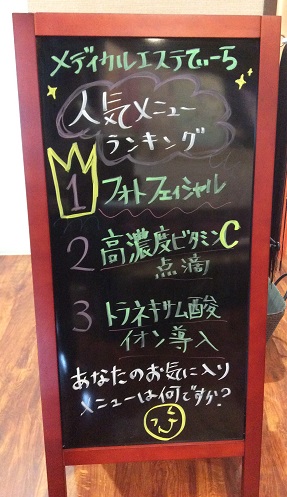 メディカルエステてぃーら
人気メニュー
ランキング
1 フォトフェイシャル
2 高濃度ビタミンC
点滴
3 トラネキサム酸
イオン導入
あなたのお気に入り
メニューは何ですか?